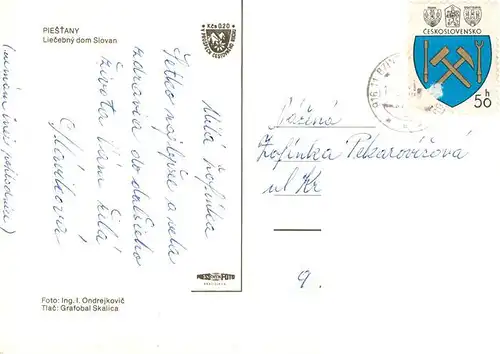 PIEŠŤANY
Liečebný dom Slovan
Kčs 0,20
Milá Žofinka
Všetko najlepšie a veľa
zdravia do ďalšieho
života Vám želá
(nemám inej pohľadnice)
Foto: Ing. I. Ondrejkovič
Tlač: Grafobal Skalica
PRESS FOTO
BRATISLAVA
ČESKOSLOVENSKO
50 h
Vážená
Žofinka Pekarovičová
ul Kr
9.